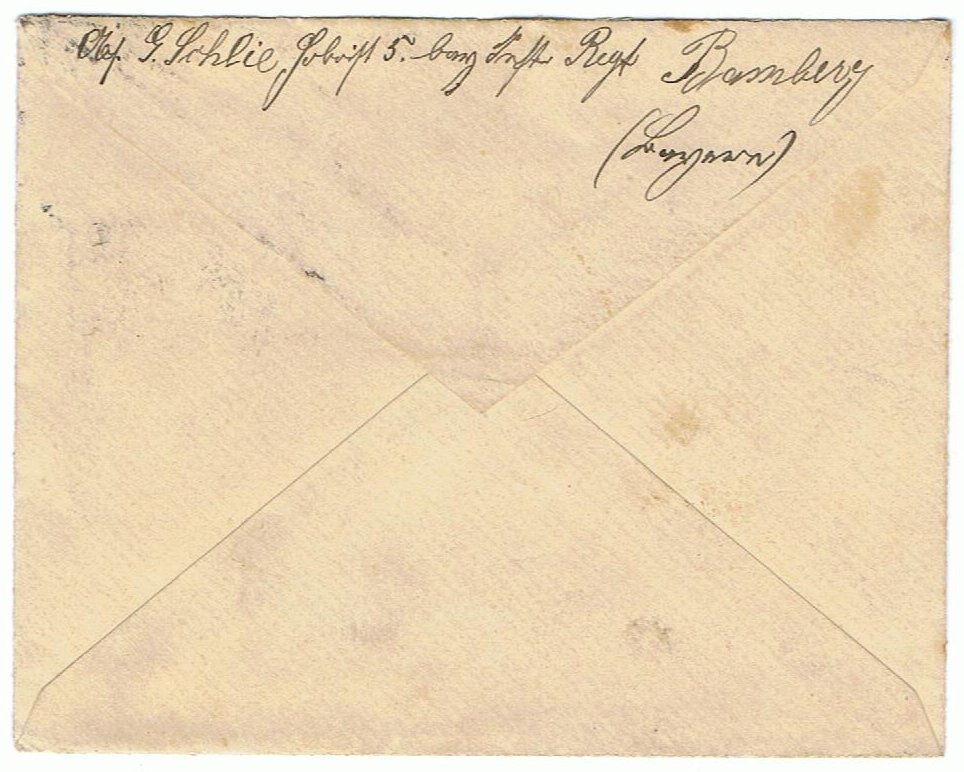 Abs. G. Schlie, Hoboist 5. bay Inftr Regt Bamberg
(Bayern)